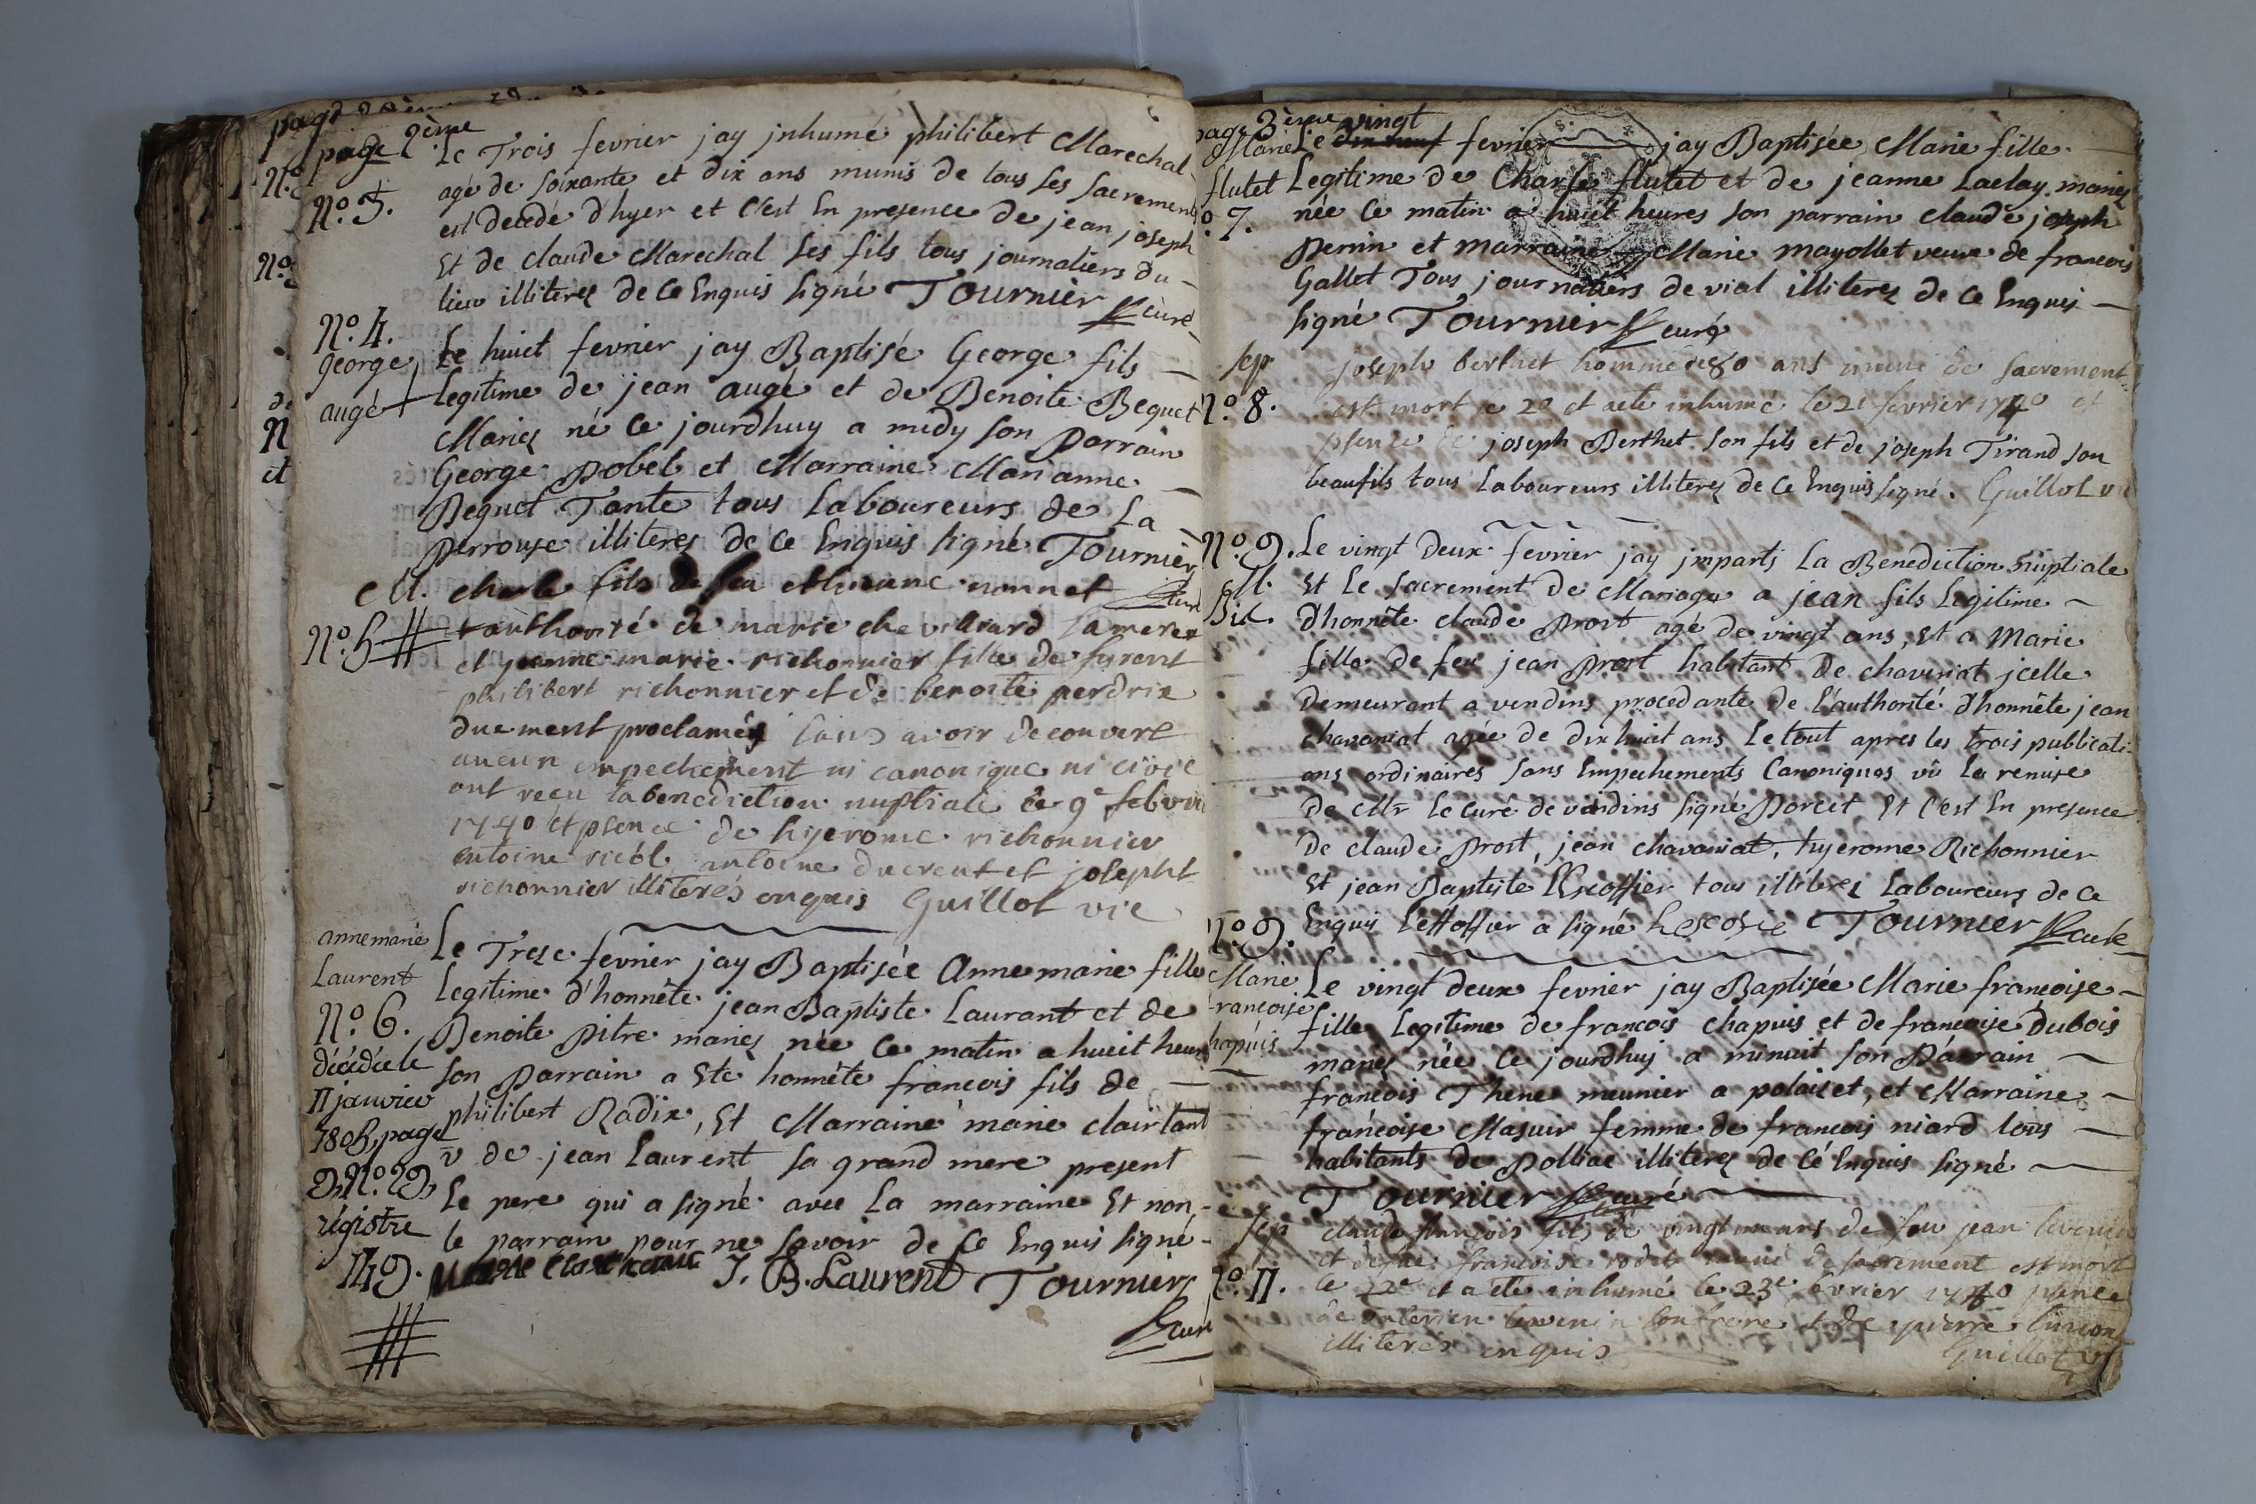 page 2ème
N.° 3.
Le Trois fevrier jay jnhumé philibert Marechal
agé de soixante et dix ans munis de tous ses sacrement
est decedé d'hyer et c'est En presence de jean joseph
Et de claude Marechal ses fils tous journaliers du
lieu illiterez de ce Enquis signé Tournier curé
N.° 4.
george
augé
Le huict fevrier jay Baptisé George fils
legitime de jean augé et de Benoite Bequet
Mariez né ce jourdhuy a midy son parrain
George pobel et Marraine Marianne
Bequet Tante tous Laboureurs de La
perrouse illiterez de ce Enquis signé Tournier
curé
M.
N.° 5
charle fils de feu nonnet
authorité de marie chevillard sa mere
et jeanne marie richonnier fille de furent
philibert richonnier et de benoite perdrix
duement proclamés sans avoir decouvert
aucun empechement ni canonique ni civil
ont recu la benediction nuptiale ce 9e febvri
1740 et psence de hyerome richonnier
antoine ricol antoine ducreut et josepht
richonnier illiterés enquis Guillot vic
annemarie
Laurent
N.° 6.
décédée le
11 janvier
1805, page
9, N.° 29,
régistre
149.
Le Treze fevrier jay Baptisée Anne marie fille
Legitime d'honnête jean Baptiste Laurant et de
Benoite pitre mariez née ce matin a huict heur
son parrain a Eté honnête francois fils de
philibert Radix, Et Marraine marie clair tant
v de jean Laurent sa grand mere present
Le pere qui a signé avec La marraine Et non
le parrain pour ne savoir de ce Enquis signé
J. B. Laurent Tournier
curé
page 3ème
Marie
flutet
° 7.
vingt
Le fevrier jay Baptisée Marie fille
Legitime de Charle flutet et de jeanne Laclay mariez
née ce matin a huict heures son parrain claude joseph
perrin et marraine Marie mayollet veuve de francois
Gallet Tous journaliers de vial illiterez de ce Enquis
signé Tournier curé
sep
N.° 8.
joseph berthet homme de 80 ans muni de sacrement
est mort le 20 et a eté inhumé le 21 fevrier 1740 et
psence de joseph Berthet son fils et de joseph Tirand son
beaufils tous Laboureurs illiterez de ce Enquis signé. Guillot vi
N.° 9.
M.
Le vingt Deux fevrier jay jmparti La Benediction nuptiale
Et Le sacrement de Mariage a jean fils Legitime
D'honnête claude prost agé de vingt ans, Et a Marie
fille de feu jean prost habitant de chaveriat jcelle
Demeurant a vendins procedante de L'authorité d'honnête jean
chavaniat agée de dix huit ans Le tout apres les trois publicati-
ons ordinaires sans Empechements Canoniques vû La remise
De Mr Le curé de vendins signé Porcet Et c'est En presence
De claude prost, jean chavaniat, hyerome Richonnier
Et jean Baptiste L'Escoffier tous illiterez Laboureurs de ce
Enquis L'escoffier a signé Lescofie Tournier curé
N.° 9.
Marie
francoise
hapuis
Le vingt deux fevrier jay Baptisée Marie francoise
fille Legitime de francois chapuis et de francoise Dubois
mariez née ce jourdhuy a minuit son parrain
francois Thene meunier a polaizet, et Marraine
francoise Masuir femme de francois niard tous
habitants de Polliac illiterez de ce Enquis signé
Tournier curé
sep
N.° 11.
claude francois fils de vingt ans de feu jean
et de francoise rodet muni de sacrement est mort
le 22e et a eté inhumé le 23e fevrier 1740 psence
de son frere et de pierre
illiterés enquis Guillot vi